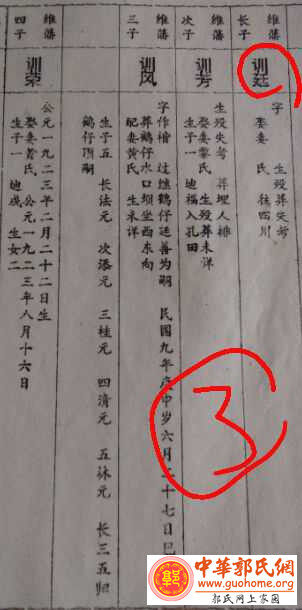 维藩
长子
训廷
字 生殁葬失考
娶妻 氏 往四川
维藩
次子
训芳
生殁失考 葬埋人排
娶妻黎氏 生殁葬未详
生子一 迪福入孔田
维藩
三子
训风
字作楷 过继鹤仔延善为嗣 民国九年庚申岁六月二十七日巳
葬鹤仔水口坝坐西东向
配妻黄氏 生未详
生子五 长法元 次添元 三桂元 四清元 五脉元 长三五归
鹤仔顶嗣
维藩
四子
训荣
公元一九二三年二月二十二日生
娶妻曾氏 公元一九二三年八月十六日
生子一 迪成 生女二
3
中華郭氏網
www.guohome.org
郭氏网上家園